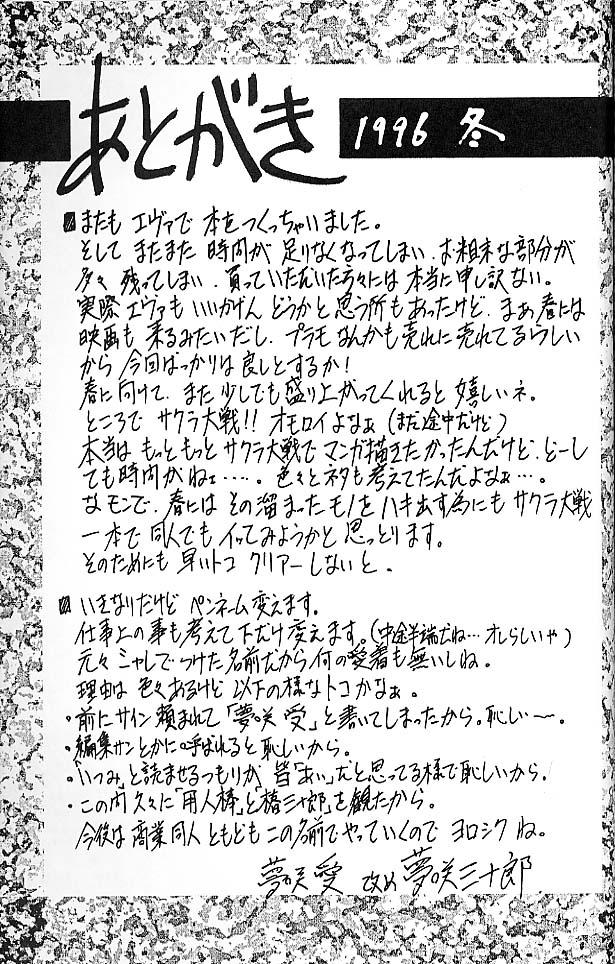 あとがき
1996 冬
またも エヴァで 本をつくっちゃいました。
そして またまた 時間が 足りなくなってしまい、お粗末な部分が
多々 残ってしまい、買っていただいた方々には 本当に申し訳ない。
実際 エヴァも いいかげん どうかと思う所もあったけど、まぁ、春には
映画も 来るみたいだし、プラモなんかも 売れに売れてるらしい
から 今回ばっかりは 良しとするか!
春に向けて、また 少しでも 盛り上がってくれると 嬉しいネ。
ところで サクラ大戦!! オモロイよなぁ (まだ途中だけど)
本当は もっともっと サクラ大戦で マンガ描きたかったんだけど、どーし
ても時間がねェ・・・・。色々とネタも考えてたんだよなぁ・・・。
なモンで、春には その溜まったモノを ハキ出す為にも サクラ大戦
一本で 同人でも イってみようかと 思っとります。
そのためにも 早いトコ クリアーしないと。
いきなりだけど ペンネーム変えます。
仕事上の事も考えて 下だけ変えます。(中途半端だね… オレらしいや)
元々 シャレで つけた名前だから 何の愛着も無いしね。
理由は 色々あるけど 以下の様なトコかなぁ。
・前にサイン頼まれて「夢咲 受」と書いてしまったから。恥しい〜。
・編集サンとかに 呼ばれると 恥しいから。
・「いつみ」と読ませるつもりが 皆「あい」だと思ってる様で恥しいから。
・この内 久々に「用人棒」と「椿三十郎」を観たから。
今後は 商業 同人 ともども この名前で やっていくので ヨロシク ね。
夢咲愛 改め 夢咲三十郎